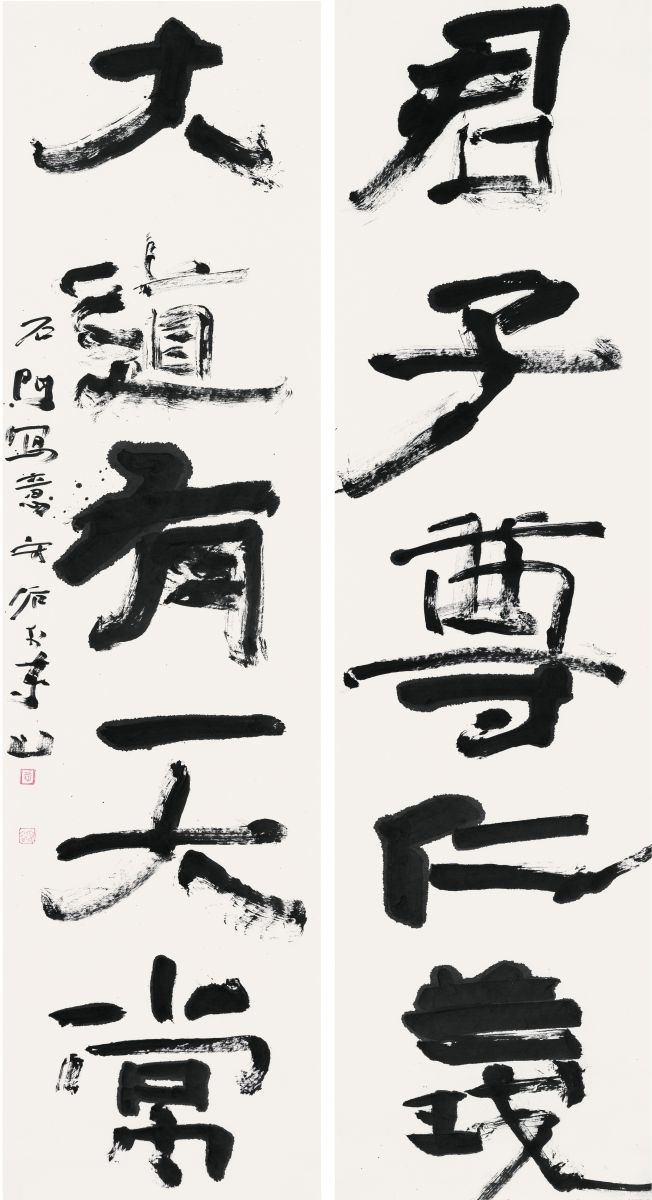 君子尊仁義
大道有天常
石門寫意